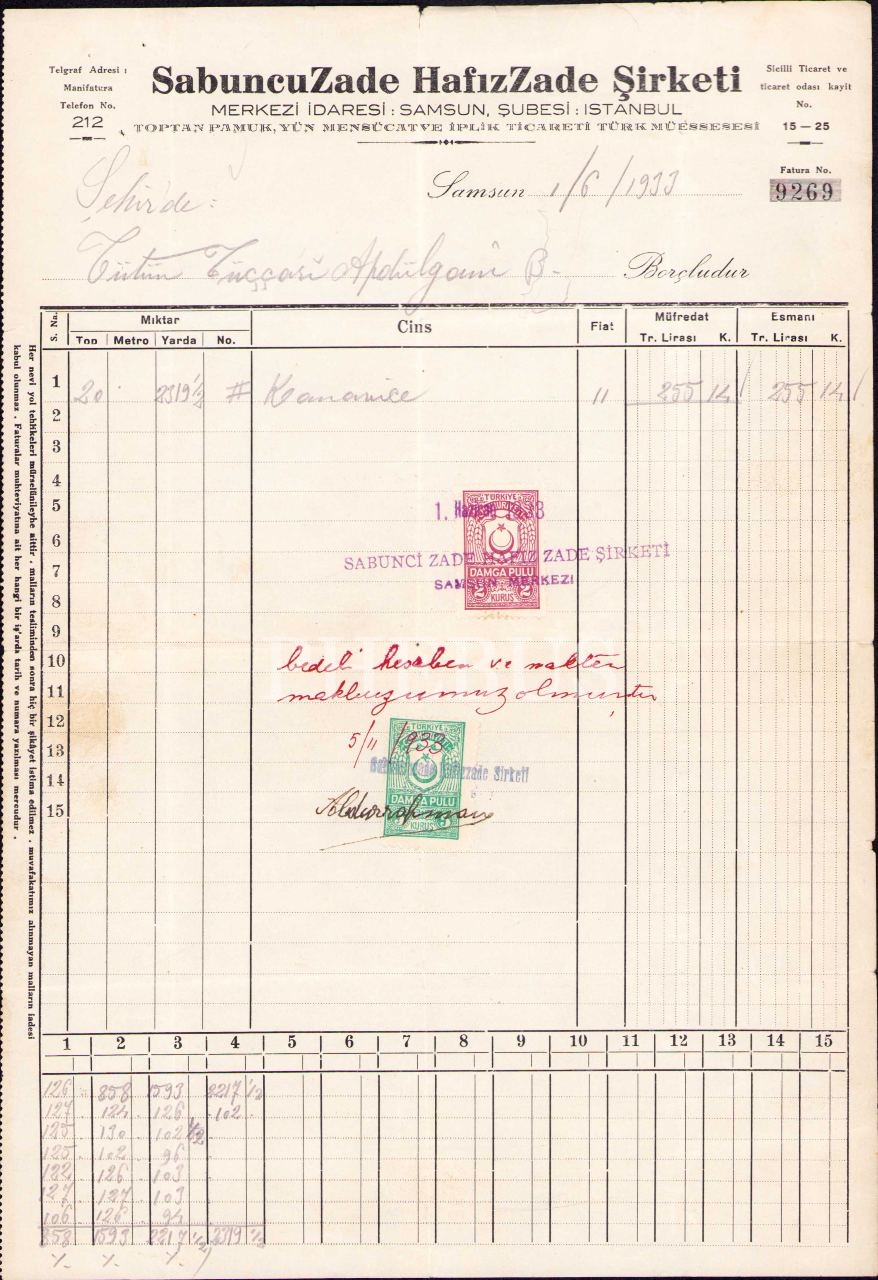 Telgraf Adresi :
Manifatura
Telefon No.
212
SabuncuZade HafızZade Şirketi
MERKEZİ İDARESİ : SAMSUN, ŞUBESİ : ISTANBUL
TOPTAN PAMUK, YÜN MENSÜCAT VE İPLİK TİCARETİ TÜRK MÜESSESESİ
Sicilli Ticaret ve
ticaret odası kayit
No.
15 — 25
Fatura No.
9269
Samsun 1/6/1933
Şehir'de :
Tütün Tüccarı Apdülgani B. Borçludur
S. No. Mıktar Cins Fiat Müfredat Esmanı
Top Metro Yarda No. Tr. Lirası K. Tr. Lirası K.
1 20 2319 1/2 # Kanaviçe 11 255 14 255 14
2
3
4
5
6
7
8
9
10
11
12
13
14
15
TÜRKİYE
1. Haziran 1933
SABUNCİ ZADE HAFIZ ZADE ŞİRKETİ
DAMGA PULU
SAMSUN MERKEZI
2 KURUŞ 2
bedeli hesaben ve nakten
makbuzumuz olmuştur
5/11/933
TÜRKİYE
Hafızzade Şirketi
DAMGA PULU
KURUŞ
Abdurrahman
Her nevi yol tehlikeleri mürselünileyhe aittir . malların tesliminden sonra hiç bir şikâyet istima edilmez . muvafakatımız alınmayan malların iadesi
kabul olunmaz . Faturalar muhteviyatına ait her hangi bir iş'arda tarih ve numara yazılması mercudur .
1 2 3 4 5 6 7 8 9 10 11 12 13 14 15
126 858 1593 2217 1/2
127 124 126 102
125 130 102 1/2
125 102 96
122 126 103
127 127 103
106 126 94
858 1593 2217 1/2 2319 1/2